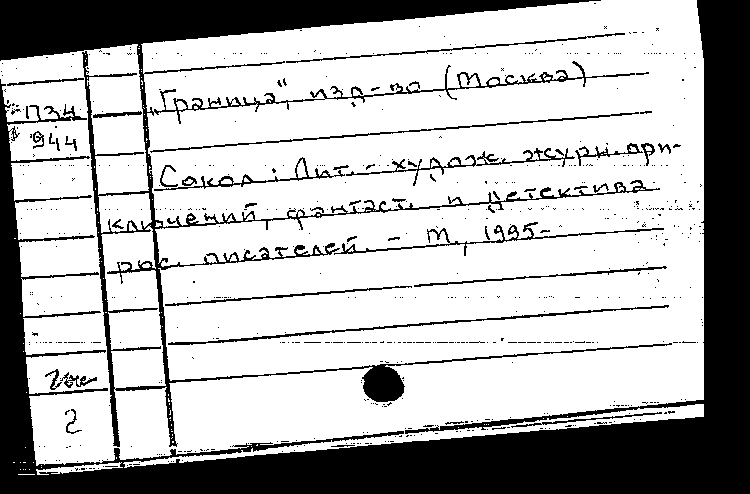 П34
944
„Граница“, изд-во (Москва)
Сокол : Лит. - худож. журн. при-
ключений, фантаст. и детектива
рос. писателей. - М., 1995-
2